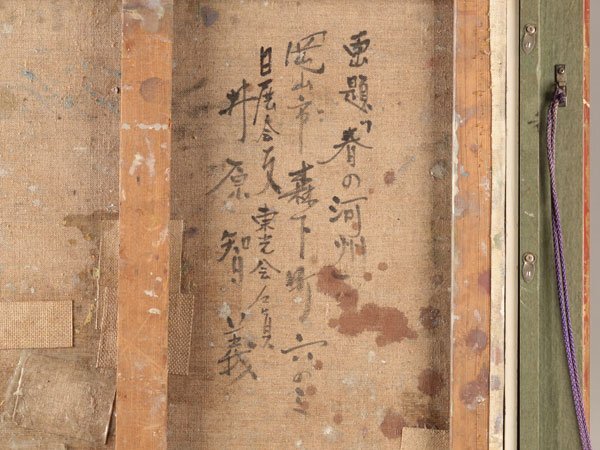 画題「春の河州」
岡山市森下町六の三
日展会友 東光会会員
井原智義